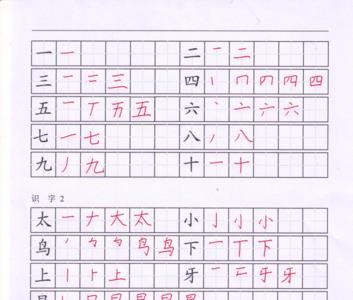 一 一 二 一 二
三 一 二 三 四 丨 冂 四 四
五 一 丅 五 五 六 丶 亠 六
七 一 七 八 丿 八
九 丿 九 十 一 十
识 字 2
太 一 ナ 大 太 小 亅 小
鸟 鸟 鸟 下 一 丅 下
上 丨 上 牙 一 牙